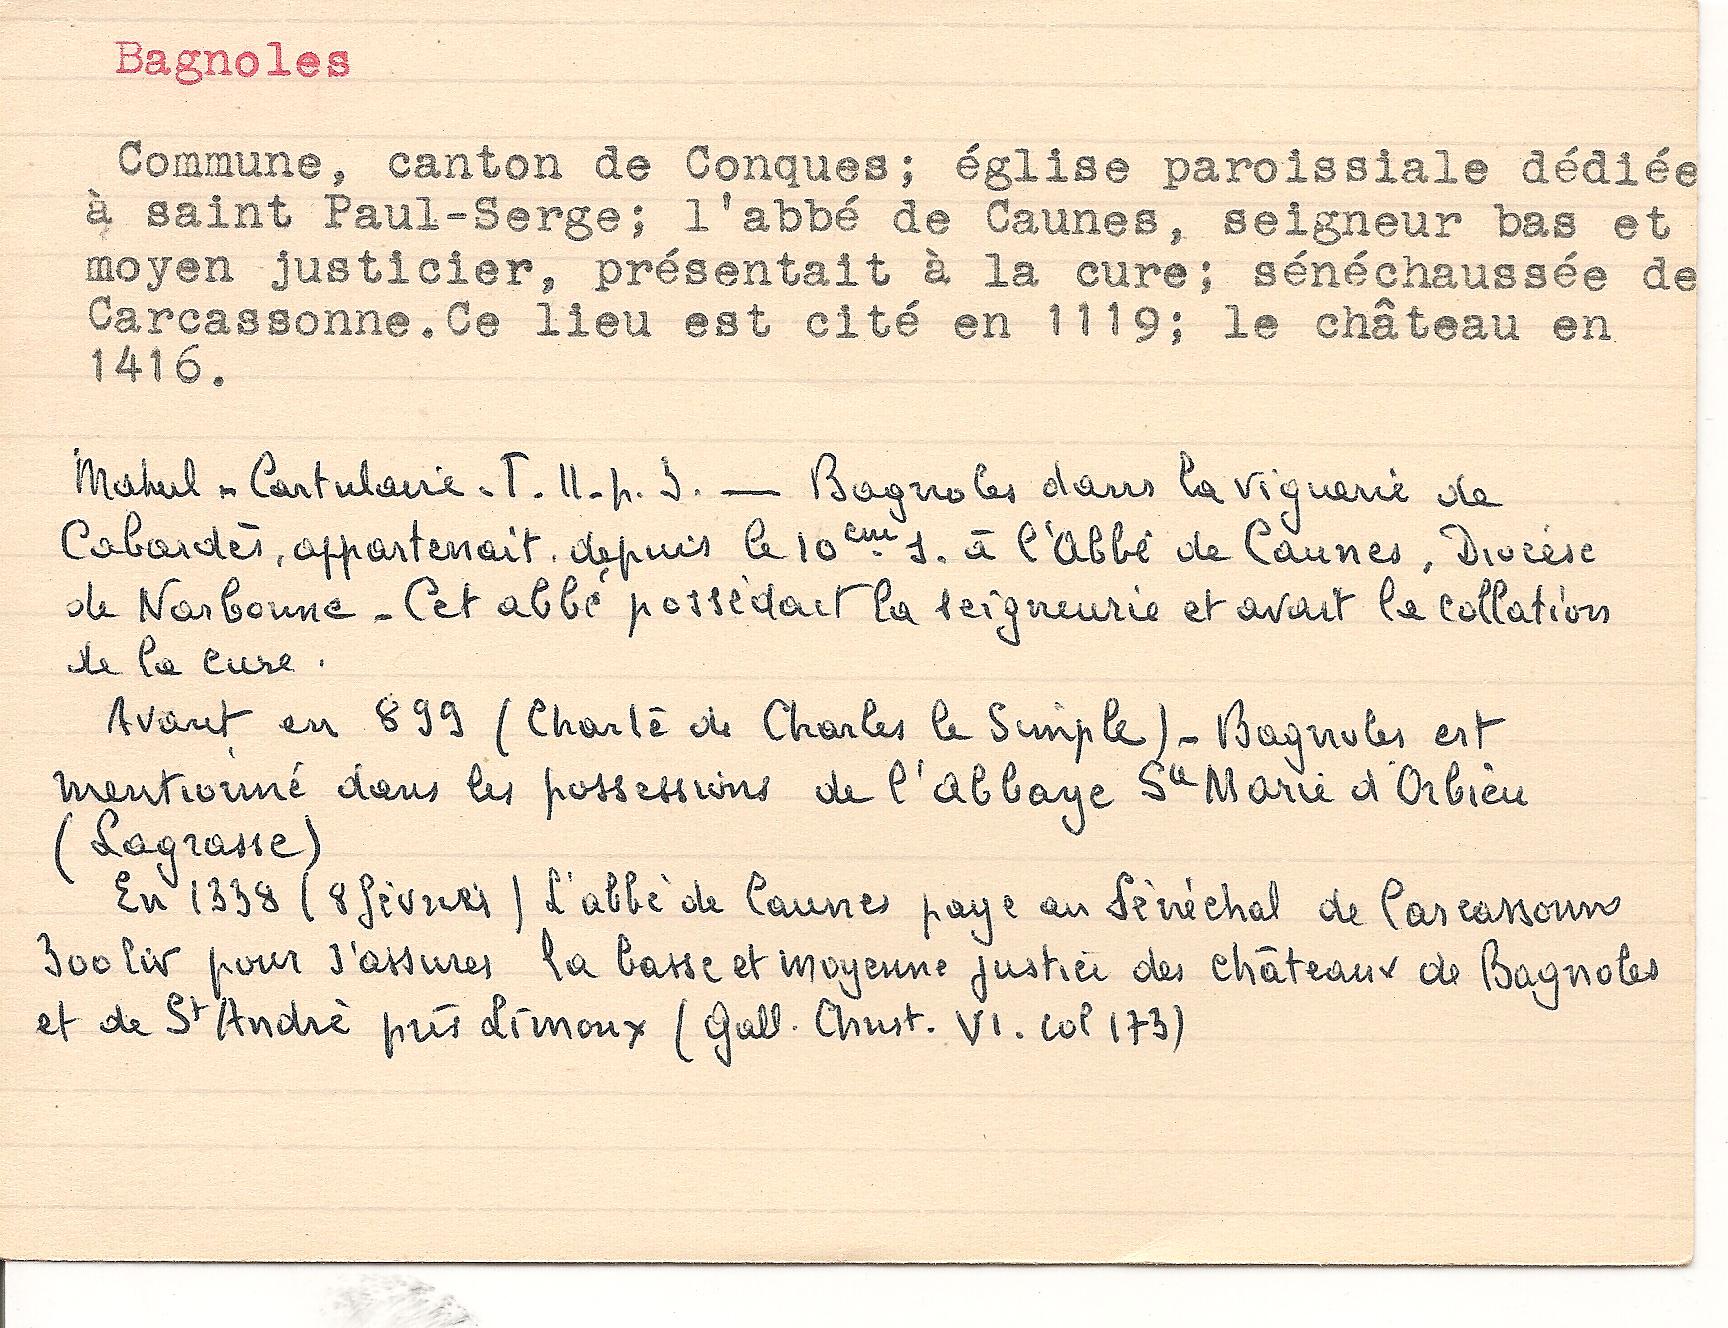 Bagnoles
Commune, canton de Conques; église paroissiale dédiée
à saint Paul-Serge; l'abbé de Caunes, seigneur bas et
moyen justicier, présentait à la cure; sénéchaussée de
Carcassonne.Ce lieu est cité en 1119; le château en
1416.
Mahul - Cartulaire - T. II - p. 3. — Bagnoles dans la viguerie de
Cabardès, appartenait depuis le 10eme s. à l'Abbé de Caunes, Diocèse
de Narbonne - Cet abbé possédait la seigneurie et avait la collation
de la cure.
Avant en 899 (Charte de Charles le Simple) - Bagnoles est
mentionné dans les possessions de l'abbaye Ste Marie d'Orbieu
(Lagrasse)
En 1338 (8 février) l'abbé de Caunes paye au Sénéchal de Carcassonne
300 liv pour s'assurer la basse et moyenne justice des châteaux de Bagnoles
et de St André près Limoux (Gall. Christ. VI. col 173)